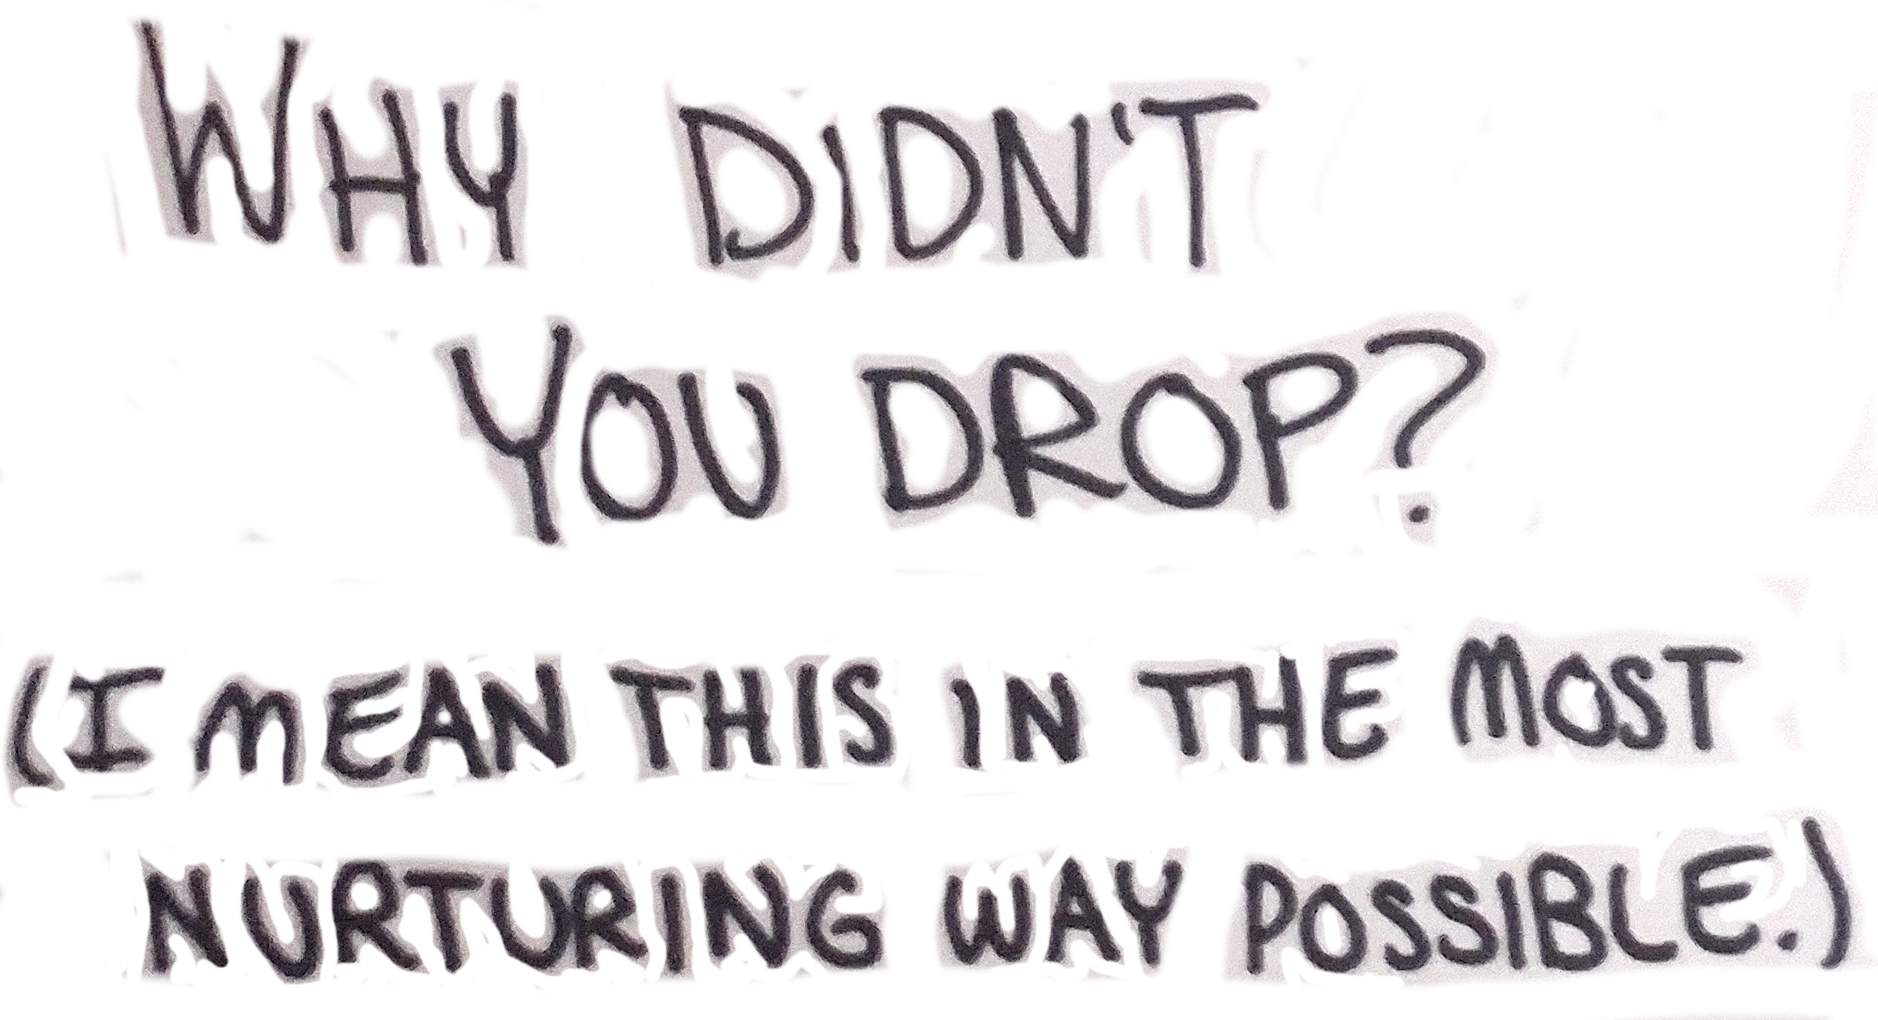 WHY DIDN'T
YOU DROP?
(I MEAN THIS IN THE MOST
NURTURING WAY POSSIBLE.)